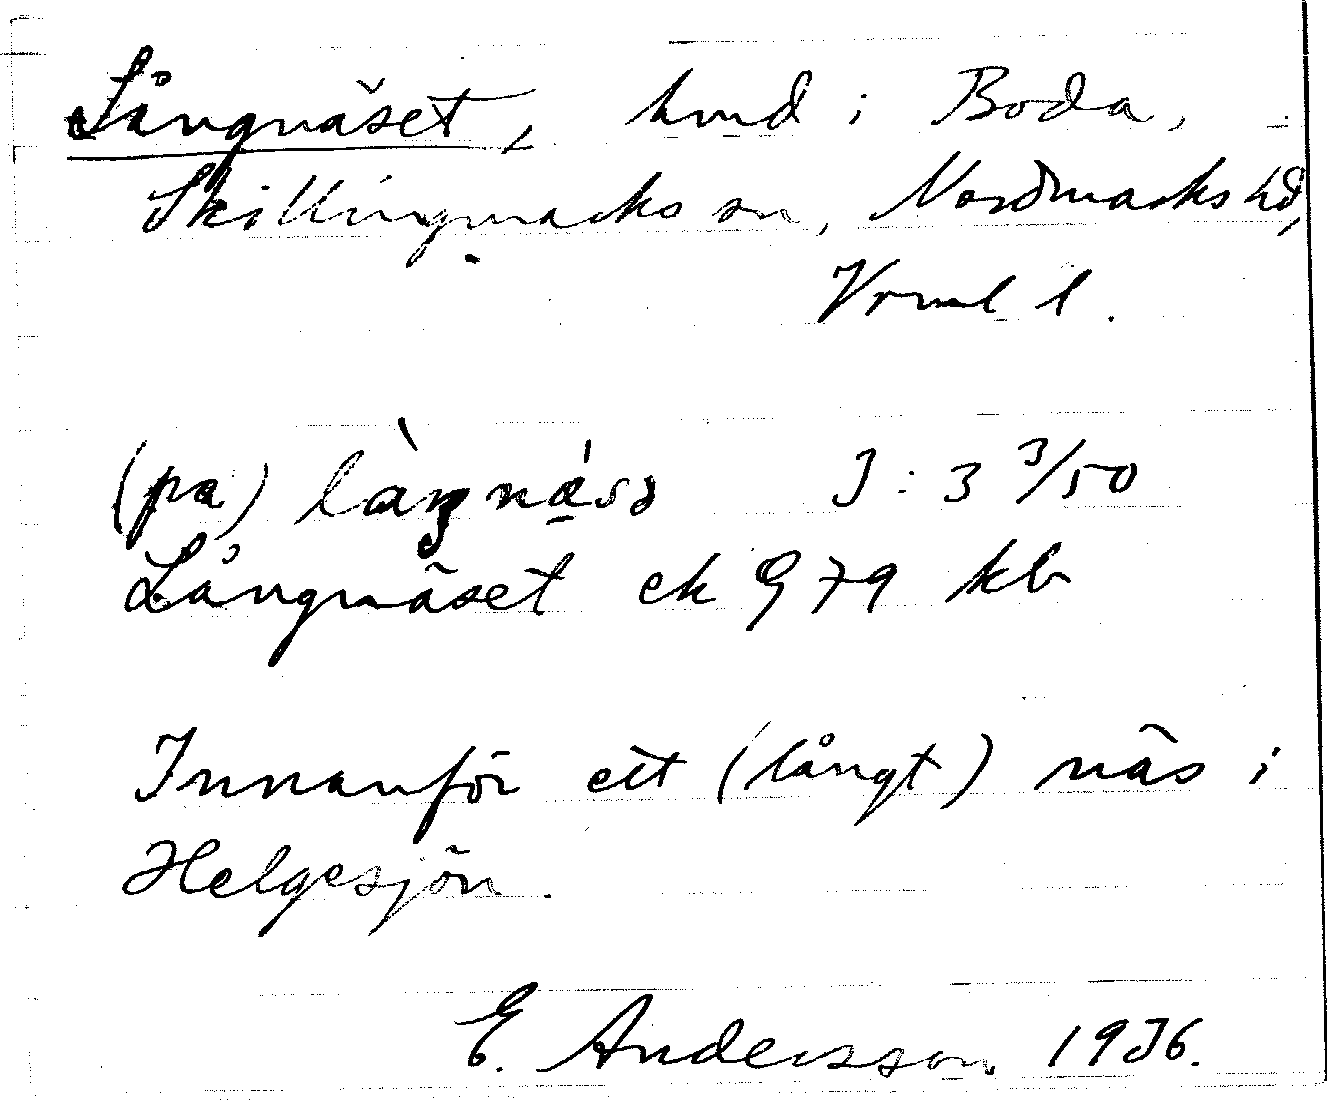 Långnäset, hmd i Boda,
Skillingmarks sn, Nordmarks hd,
Vrml l.
(pa) làŋnǽsə J: 3 3/50
Långnäset ek G 79 kb
Innanför ett (långt) näs i
Helgesjön.
E. Andersson 1936.